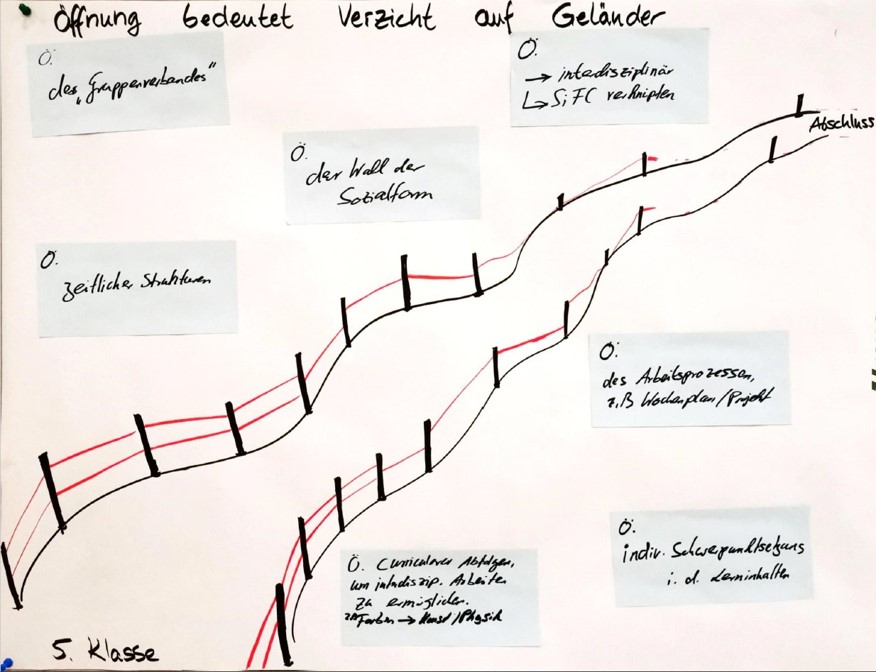 Öffnung bedeutet Verzicht auf Geländer
Ö.
des „Gruppenverbandes"
Ö.
→ interdisziplinär
↳ SiFC verknüpfen
Abschluss
Ö.
der Wall der
Sozialform
Ö.
zeitlicher Strukturen
Ö.
des Arbeitsprozesses,
z,B Wochenplan/Projekt
Ö.
indiv. Schwerpunktsetzung
i. d. Lerninhalten
Ö. Curricularer Abfolgen,
um interdiszip. Arbeiten
zu ermöglichen.
zB Farben → Kunst/Physik
5. Klasse